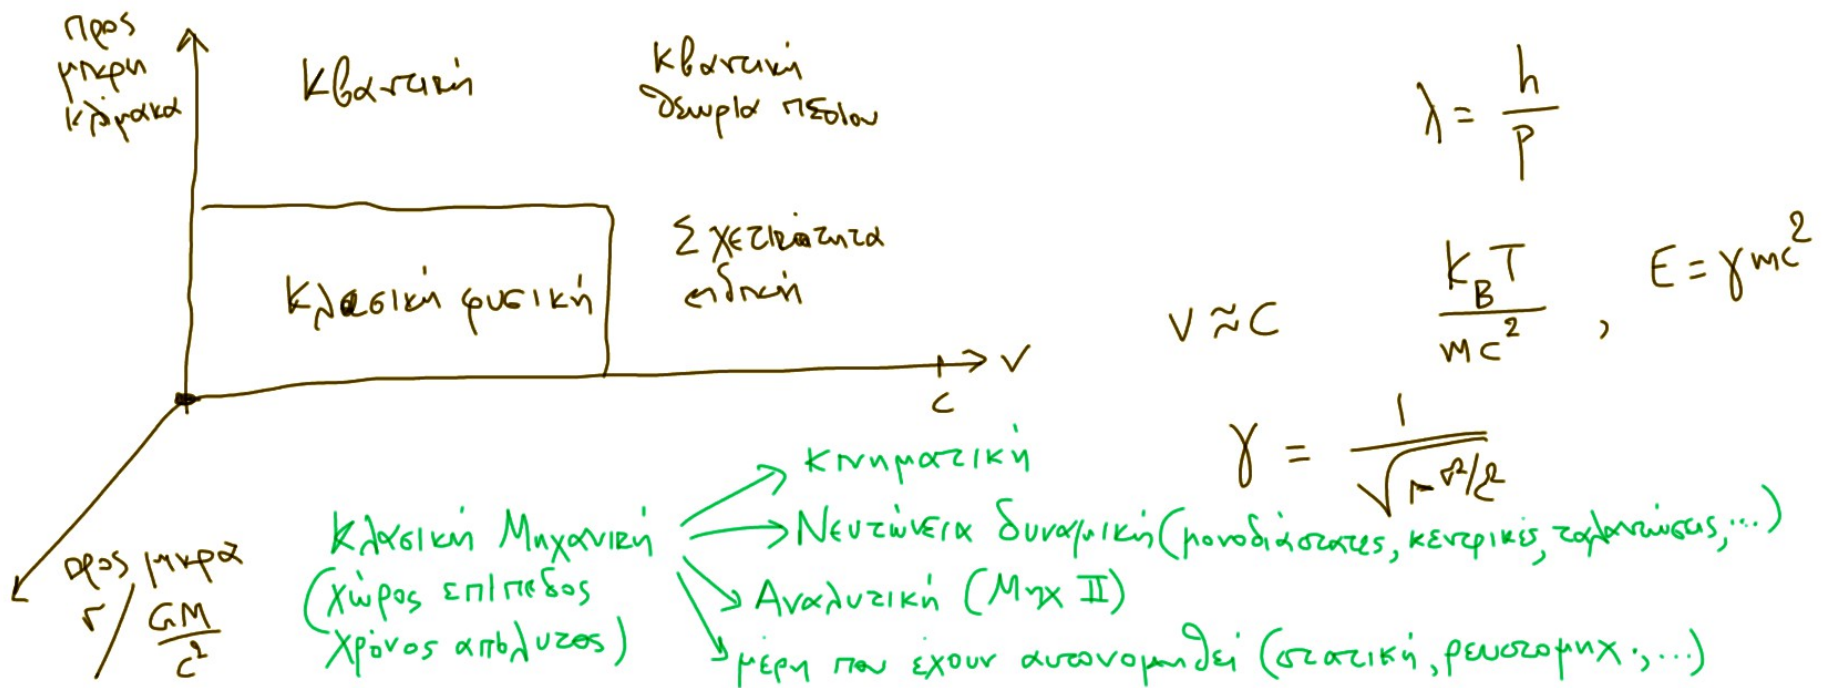 προς
μικρή
κλίμακα
Κβαντική
Κβαντική
θεωρία πεδίου
Κλασική φυσική
Σχετικότητα
ειδική
v
c
προς μικρά
r / GM/c²
λ = h/p
v ≈ c
K_B T / mc² , E = γmc²
γ = 1/√(1-v²/c²)
Κλασική Μηχανική
(χώρος επίπεδος
χρόνος απόλυτος)
κινηματική
Νευτώνεια δυναμική (μονοδιάστατες, κεντρικές, ταλαντώσεις, ...)
Αναλυτική (Μηχ II)
μέρη που έχουν αυτονομηθεί (στατική, ρευστομηχ., ...)